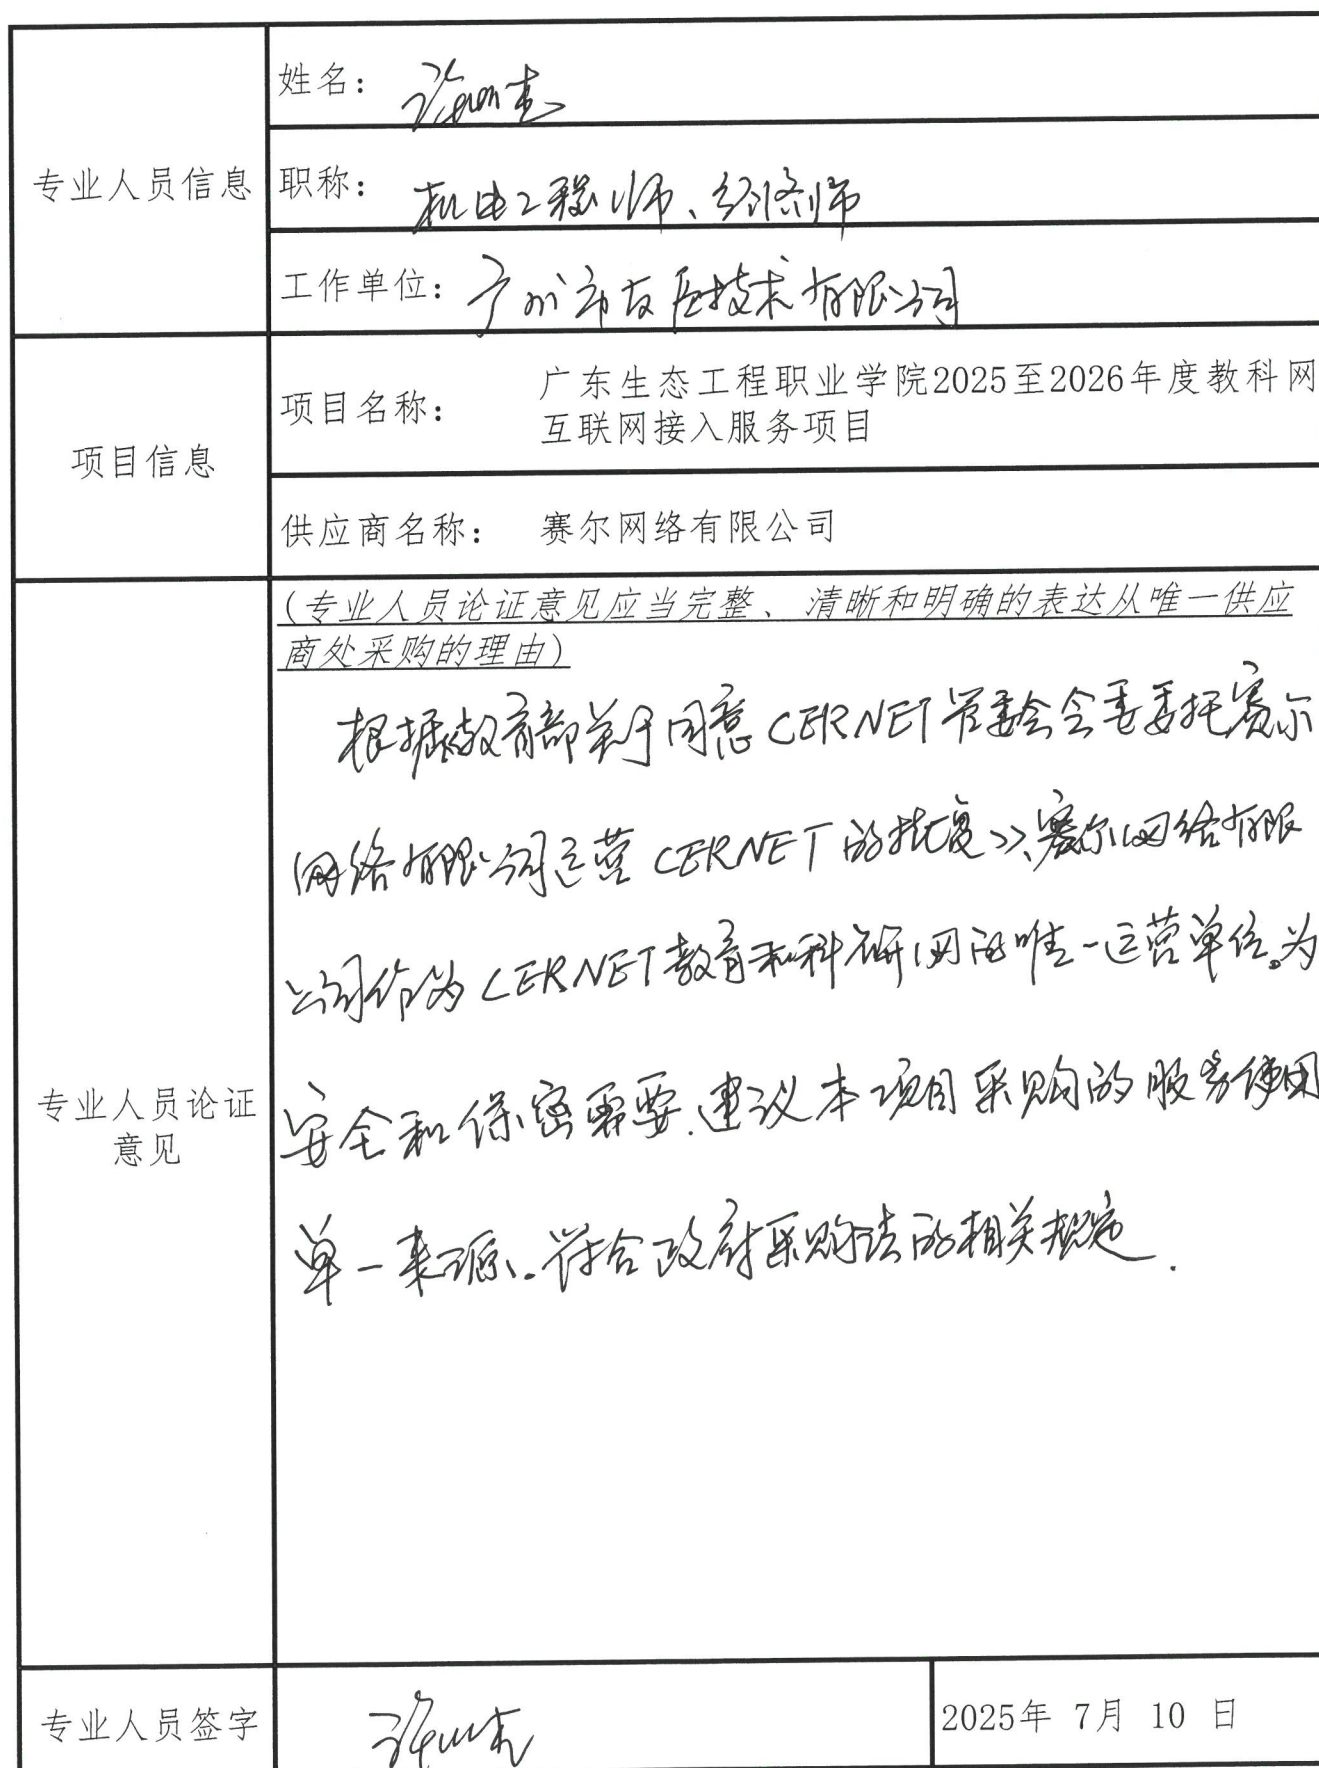 姓名：
专业人员信息
职称： 机电工程师、经济师
工作单位： 广州市友臣技术有限公司
项目信息
项目名称： 广东生态工程职业学院2025至2026年度教科网
互联网接入服务项目
供应商名称： 赛尔网络有限公司
（专业人员论证意见应当完整、清晰和明确的表达从唯一供应
商处采购的理由）
根据教育部关于同意CERNET管委会委托赛尔
网络有限公司运营CERNET的批复》，赛尔网络有限
公司作为CERNET教育和科研网的唯一运营单位。为
专业人员论证
意见
安全和保密需要，建议本项目采购的服务使用
单一来源。符合政府采购法的相关规定.
专业人员签字
2025年 7月 10 日